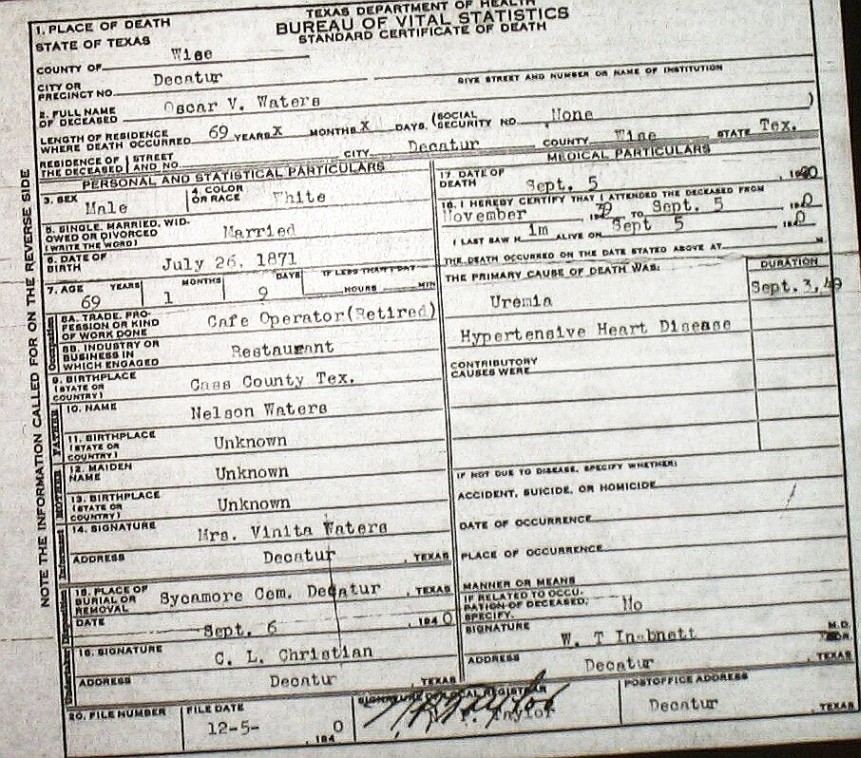 TEXAS DEPARTMENT OF HEALTH
BUREAU OF VITAL STATISTICS
STANDARD CERTIFICATE OF DEATH
NOTE THE INFORMATION CALLED FOR ON THE REVERSE SIDE
1. PLACE OF DEATH
STATE OF TEXAS
COUNTY OF Wise
CITY OR PRECINCT NO. Decatur GIVE STREET AND NUMBER OR NAME OF INSTITUTION
2. FULL NAME OF DECEASED Oscar V. Waters
LENGTH OF RESIDENCE WHERE DEATH OCCURRED 69 YEARS x MONTHS x DAYS. (SOCIAL SECURITY NO. None )
RESIDENCE OF THE DECEASED STREET AND NO. CITY Decatur COUNTY Wise STATE Tex.
PERSONAL AND STATISTICAL PARTICULARS
3. SEX Male 4. COLOR OR RACE White
5. SINGLE, MARRIED, WIDOWED OR DIVORCED (WRITE THE WORD) Married
6. DATE OF BIRTH July 26, 1871
7. AGE YEARS 69 MONTHS 1 DAYS 9 IF LESS THAN 1 DAY HOURS MIN
Occupation
8A. TRADE, PROFESSION OR KIND OF WORK DONE Cafe Operator(Retired)
8B. INDUSTRY OR BUSINESS IN WHICH ENGAGED Restaurant
9. BIRTHPLACE (STATE OR COUNTRY) Cass County Tex.
FATHER
10. NAME Nelson Waters
11. BIRTHPLACE (STATE OR COUNTRY) Unknown
MOTHER
12. MAIDEN NAME Unknown
13. BIRTHPLACE (STATE OR COUNTRY) Unknown
Informant
14. SIGNATURE Mrs. Vinita Waters
ADDRESS Decatur , TEXAS
Disposition
15. PLACE OF BURIAL OR REMOVAL Sycamore Cem. Decatur , TEXAS
DATE Sept. 6 , 1940
Undertaker
16. SIGNATURE C. L. Christian
ADDRESS Decatur , TEXAS
MEDICAL PARTICULARS
17. DATE OF DEATH Sept. 5 , 1940
18. I HEREBY CERTIFY THAT I ATTENDED THE DECEASED FROM
November 1939 TO Sept. 5 1940
I LAST SAW H im ALIVE ON Sept 5 1940
THE DEATH OCCURRED ON THE DATE STATED ABOVE AT M
THE PRIMARY CAUSE OF DEATH WAS: DURATION
Uremia Sept. 3,
Hypertensive Heart Disease
CONTRIBUTORY CAUSES WERE
IF NOT DUE TO DISEASE, SPECIFY WHETHER:
ACCIDENT, SUICIDE, OR HOMICIDE
DATE OF OCCURRENCE
PLACE OF OCCURRENCE , TEXAS
MANNER OR MEANS
IF RELATED TO OCCUPATION OF DECEASED, SPECIFY. No
SIGNATURE W. T Inabnett M.D.
ADDRESS Decatur , TEXAS
20. FILE NUMBER
FILE DATE 12-5- , 1940
SIGNATURE OF LOCAL REGISTRAR
Taylor
POSTOFFICE ADDRESS
Decatur , TEXAS